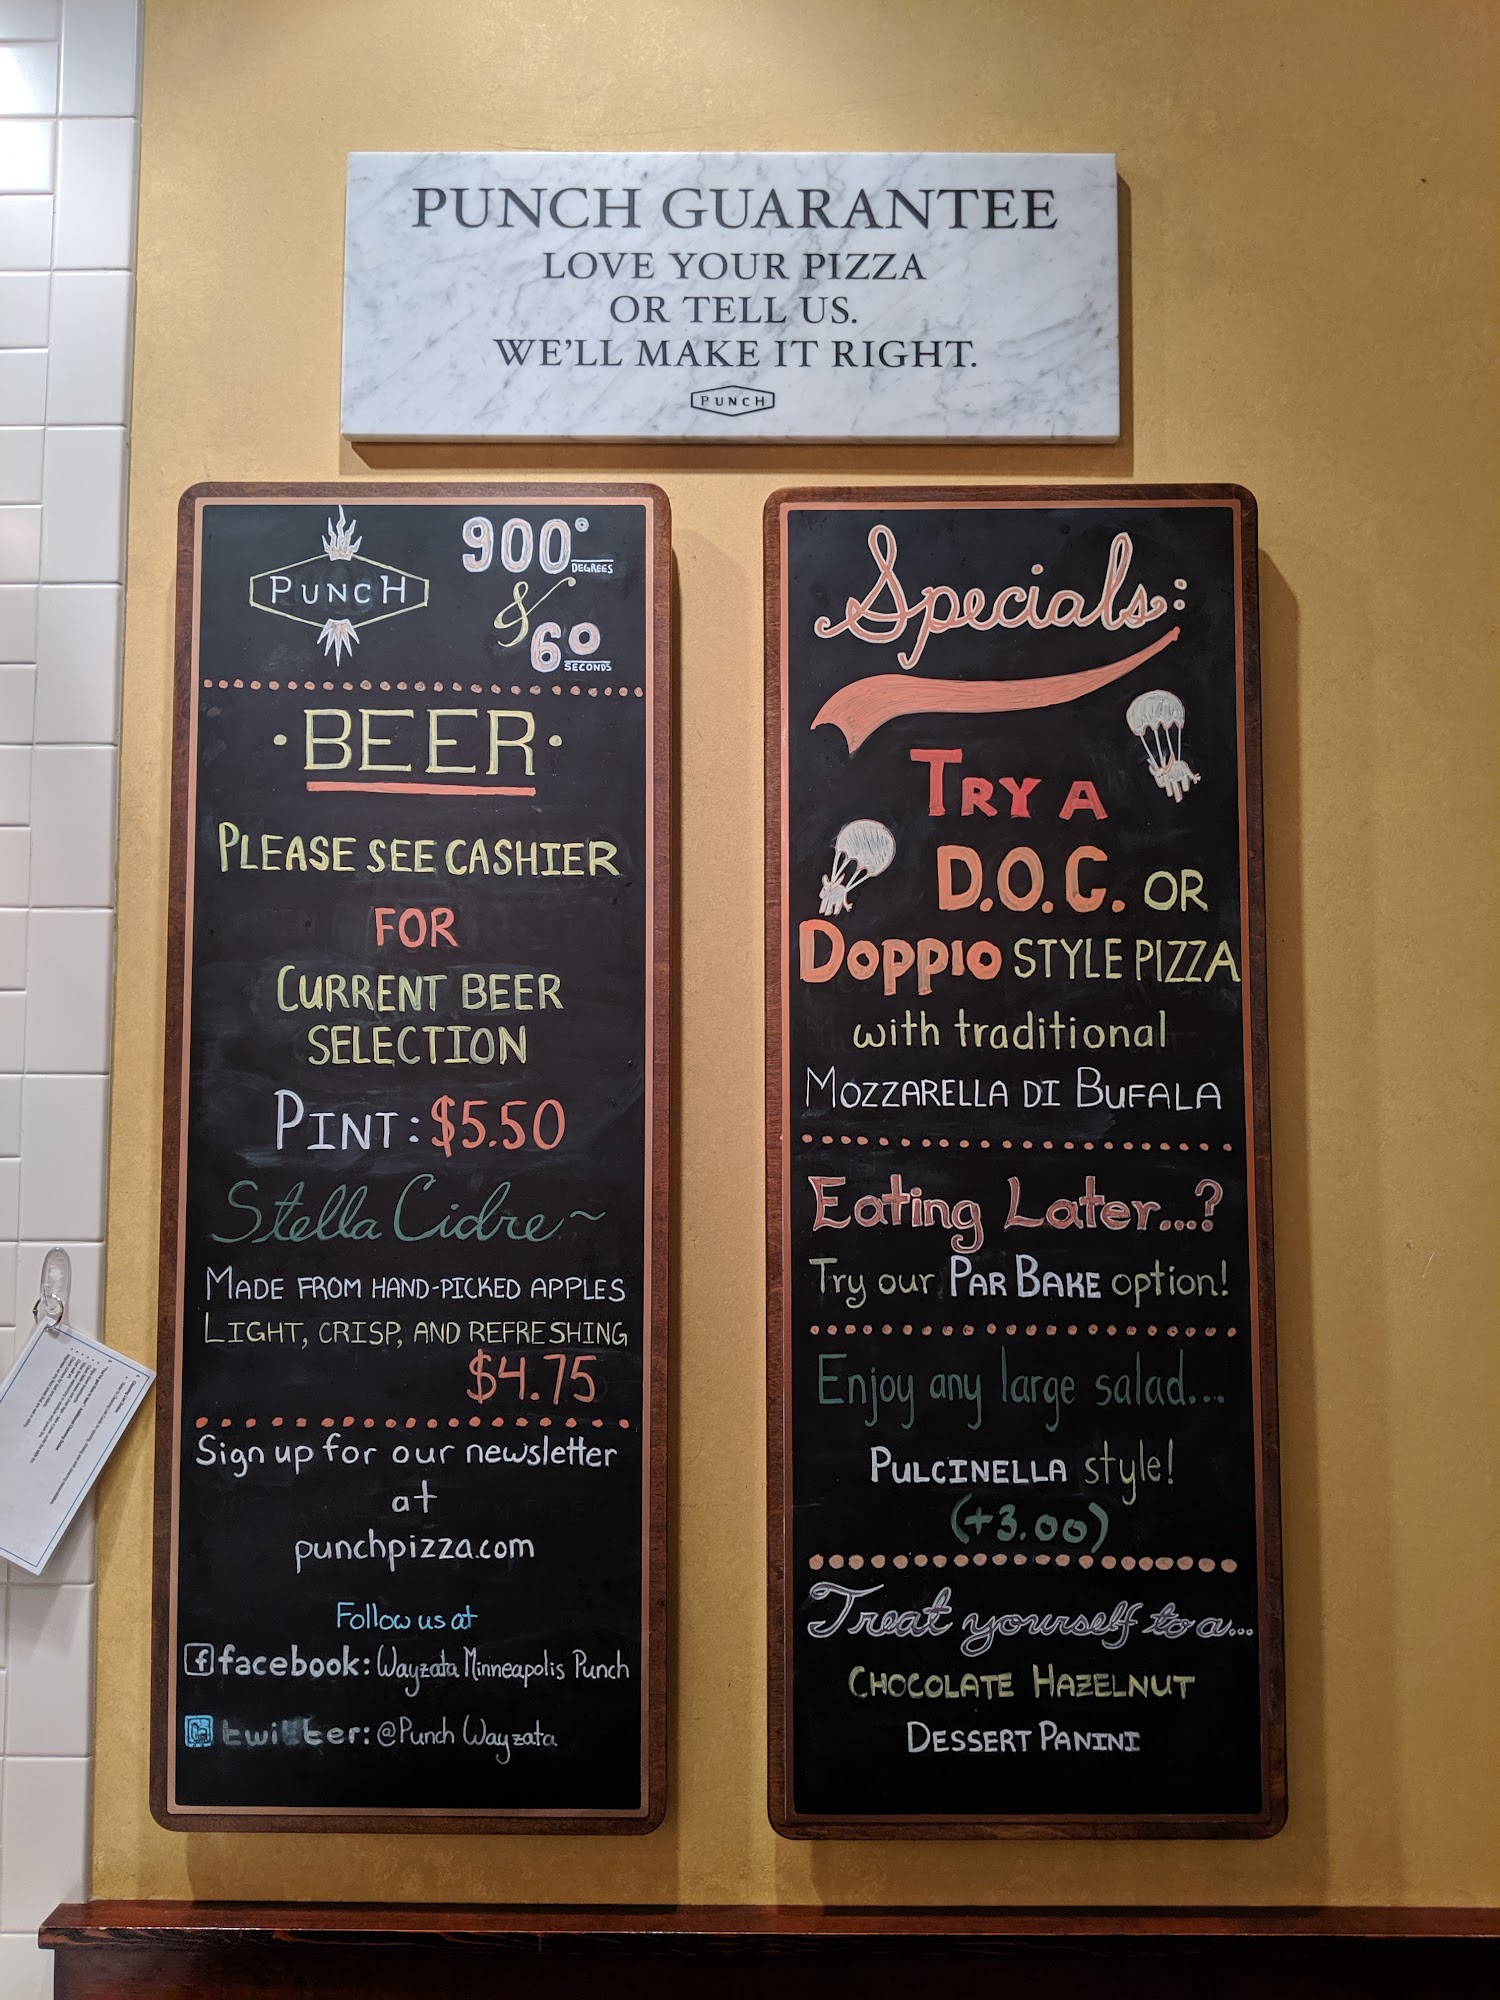 PUNCH GUARANTEE
LOVE YOUR PIZZA
OR TELL US.
WE'LL MAKE IT RIGHT.
PUNCH
PUNCH
900°
DEGREES
&
60
SECONDS
·BEER·
PLEASE SEE CASHIER
FOR
CURRENT BEER
SELECTION
PINT: $5.50
Stella Cidre~
MADE FROM HAND-PICKED APPLES
LIGHT, CRISP, AND REFRESHING
$4.75
Sign up for our newsletter
at
punchpizza.com
Follow us at
f facebook: Wayzata Minneapolis Punch
twitter: @Punch Wayzata
Specials:
TRY A
D.O.C. OR
DOPPIO STYLE PIZZA
with traditional
MOZZARELLA DI BUFALA
Eating Later...?
Try our PAR BAKE option!
Enjoy any large salad...
PULCINELLA style!
(+3.00)
Treat yourself to a...
CHOCOLATE HAZELNUT
DESSERT PANINI